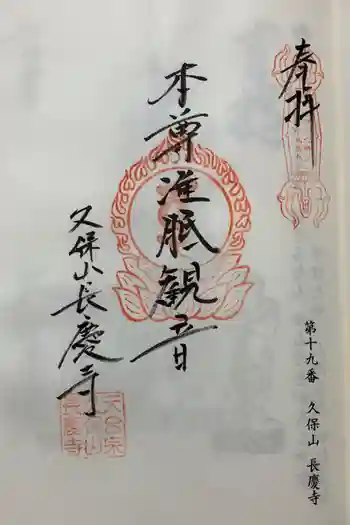 奉拝
本尊准胝観音
久保山長慶寺
第十九番 久保山 長慶寺